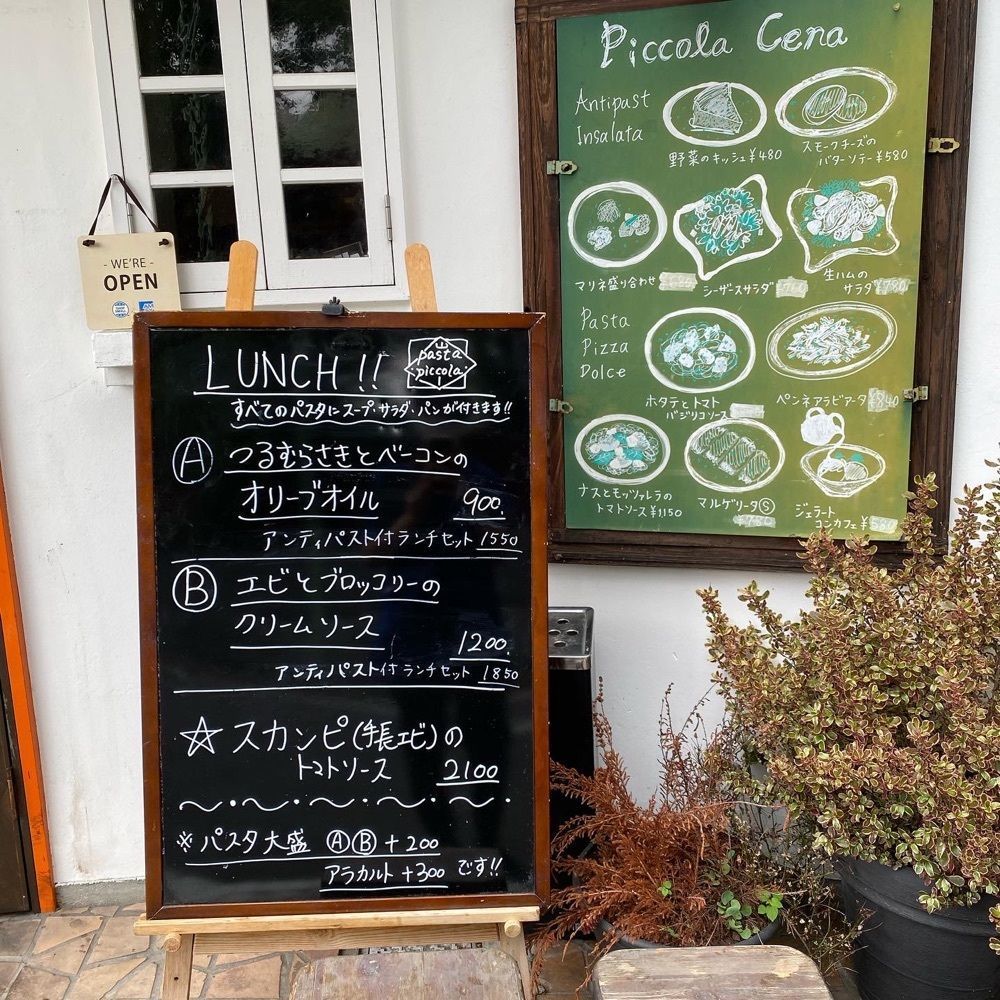 - WE'RE -
OPEN
LUNCH!!
pasta
piccola
すべてのパスタにスープ・サラダ・パンが付きます!!
Ⓐ つるむらさきとベーコンの
オリーブオイル 900.
アンティパスト付ランチセット 1550
Ⓑ エビとブロッコリーの
クリームソース 1200.
アンティパスト付ランチセット 1850
☆ スカンピ(手長エビ)の
トマトソース 2100
～・～・～・～・～・
※パスタ大盛 ⒶⒷ+200
アラカルト+300 です!!
Piccola Cena
Antipast
Insalata
野菜のキッシュ¥480
スモークチーズの
バターソテー¥580
マリネ盛り合わせ
シーザースサラダ ¥760
生ハムの
サラダ ¥780
Pasta
Pizza
Dolce
ホタテとトマト
バジリコソース
ペンネアラビアータ ¥840
ナスとモッツァレラの
トマトソース¥1150
マルゲリータⓈ
¥780
ジェラート
コンカフェ ¥580